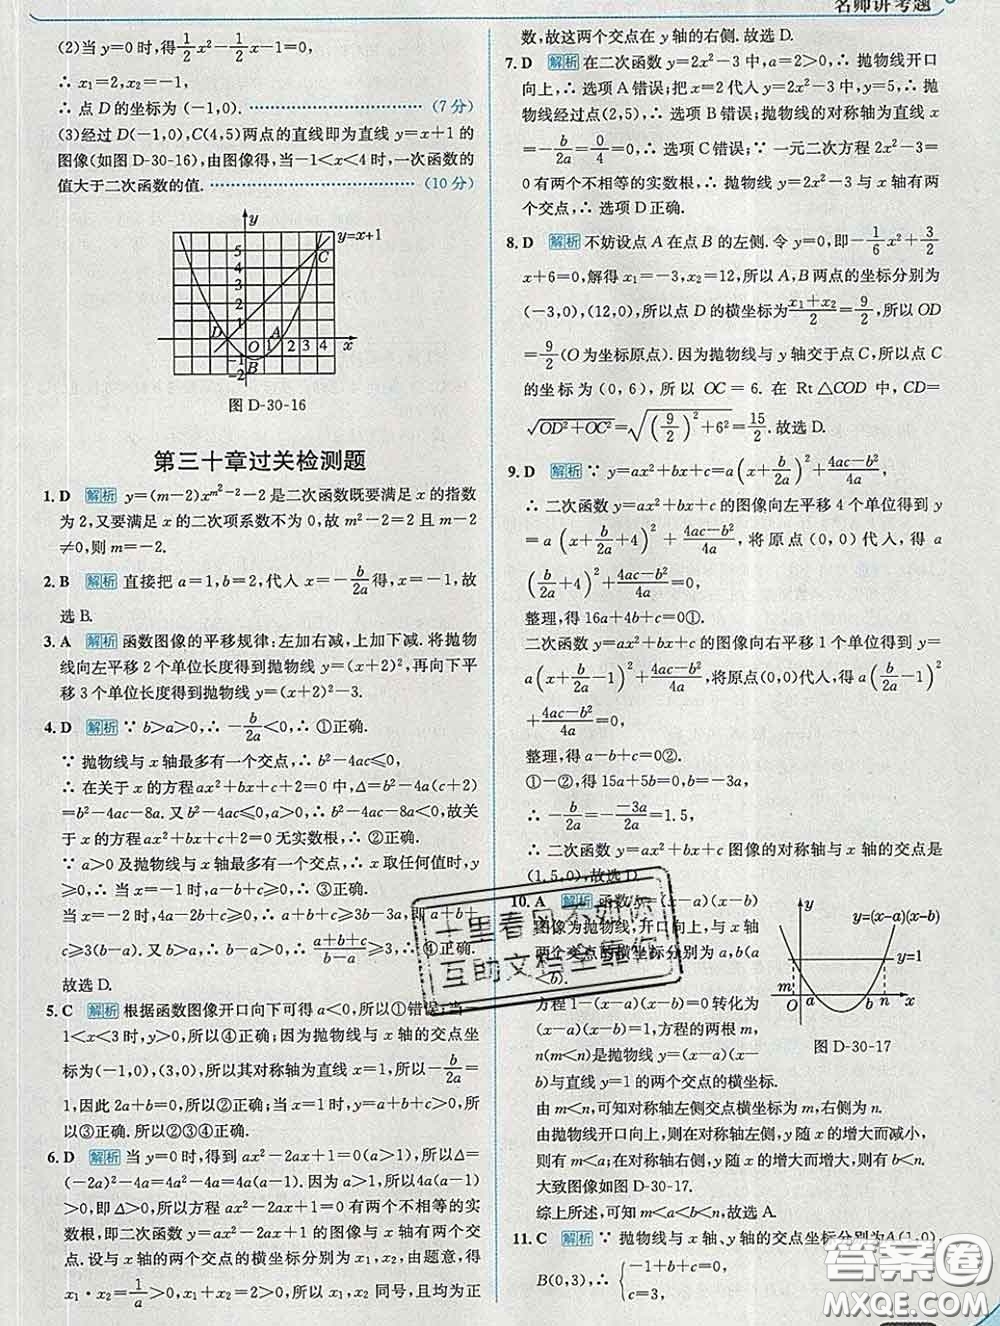 名师讲考题
(2)当 y=0 时,得\frac{1}{2}x²-\frac{1}{2}x-1=0,
∴ x₁=2,x₂=-1,
∴ 点 D 的坐标为 (-1,0). (7 分)
(3)经过 D(-1,0),C(4,5)两点的直线即为直线 y=x+1 的
图像(如图 D-30-16),由图像得,当-1<x<4 时,一次函数的
值大于二次函数的值. (10 分)
y
y=x+1
5
4
3
2
1
C
D O 1 A 2 3 4 x
-1
B
-2
图 D-30-16
第三十章过关检测题
1. D 解析 y=(m-2)x^{m²-2}-2 是二次函数既要满足 x 的指数
为 2,又要满足 x 的二次项系数不为 0,故 m²-2=2 且 m-2
≠0,则 m=-2.
2. B 解析 直接把 a=1,b=2,代入 x=-\frac{b}{2a}得,x=-1,故
选 B.
3. A 解析 函数图像的平移规律:左加右减,上加下减. 将抛物
线向左平移 2 个单位长度得到抛物线 y=(x+2)²,再向下平
移 3 个单位长度得到抛物线 y=(x+2)²-3.
4. D 解析 ∵ b>a>0,∴ -\frac{b}{2a}<0,∴ ①正确.
∵ 抛物线与 x 轴最多有一个交点,∴ b²-4ac≤0,
∴ 在关于 x 的方程 ax²+bx+c+2=0 中,Δ=b²-4a(c+2)
=b²-4ac-8a. 又 b²-4ac≤0,a>0,∴ b²-4ac-8a<0,故关
于 x 的方程 ax²+bx+c+2=0 无实数根,∴ ②正确.
∵ a>0 及抛物线与 x 轴最多有一个交点,∴ x 取任何值时,y
≥0.∴ 当 x=-1 时,a-b+c≥0,∴ ③正确.
当 x=-2 时,4a-2b+c≥0,所以 a+b+c≥3b-3a,即 a+b+
c≥3(b-a). 又 b>a,∴ b-a>0,∴ \frac{a+b+c}{b-a}≥3,∴ ④正确.
故选 D.
5. C 解析 根据函数图像开口向下可得 a<0,所以①错误;当
1<x<3 时,y>0,所以④正确;因为抛物线与 x 轴的交点坐
标为(-1,0),(3,0),所以其对称轴为直线 x=1,所以-\frac{b}{2a}=
1,因此 2a+b=0,所以②正确;当 x=1 时,y=a+b+c>0,所
以③正确. 所以②③④正确.
6. D 解析 当 y=0 时,得到 ax²-2ax+1=0(a>1),所以 Δ=
(-2a)²-4a=4a²-4a=4a(a-1). 因为 a>1,所以 4a(a-1)
>0,即 Δ>0,所以方程 ax²-2ax+1=0 有两个不相等的实数
根,即二次函数 y=ax²-2ax+1 的图像与 x 轴有两个交
点. 设与 x 轴的两个交点的横坐标分别为 x₁,x₂,由题意,得
x₁·x₂=\frac{1}{a}>0,x₁+x₂=2>0,所以 x₁,x₂ 同号,且均为正
数,故这两个交点在 y 轴的右侧. 故选 D.
7. D 解析 在二次函数 y=2x²-3 中,a=2>0,∴ 抛物线开口
向上,∴ 选项 A 错误;把 x=2 代入 y=2x²-3 中,y=5,∴ 抛
物线经过点(2,5),∴ 选项 B 错误;抛物线的对称轴为直线
x=-\frac{b}{2a}=\frac{0}{4}=0,∴ 选项 C 错误;∵ 一元二次方程 2x²-3=
0 有两个不相等的实数根,∴ 抛物线 y=2x²-3 与 x 轴有两
个交点,∴ 选项 D 正确.
8. D 解析 不妨设点 A 在点 B 的左侧. 令 y=0,即-\frac{1}{6}x²+\frac{3}{2}
x+6=0,解得 x₁=-3,x₂=12,所以 A,B 两点的坐标分别为
(-3,0),(12,0),所以点 D 的横坐标为\frac{x₁+x₂}{2}=\frac{9}{2},所以 OD
=\frac{9}{2}(O 为坐标原点). 因为抛物线与 y 轴交于点 C,所以点 C
的坐标为(0,6),所以 OC=6. 在 Rt△COD 中,CD=
\sqrt{OD²+OC²}=\sqrt{(\frac{9}{2})²+6²}=\frac{15}{2}. 故选 D.
9. D 解析 ∵ y=ax²+bx+c=a(x+\frac{b}{2a})²+\frac{4ac-b²}{4a},
∴ 二次函数 y=ax²+bx+c 的图像向左平移 4 个单位得到 y
=a(x+\frac{b}{2a}+4)²+\frac{4ac-b²}{4a},将原点(0,0)代入,得
a(\frac{b}{2a}+4)²+\frac{4ac-b²}{4a}=0,
整理,得 16a+4b+c=0①.
二次函数 y=ax²+bx+c 的图像向右平移 1 个单位得到 y=
a(x+\frac{b}{2a}-1)²+\frac{4ac-b²}{4a},将原点(0,0)代入,得 a(\frac{b}{2a}-1)²
+\frac{4ac-b²}{4a}=0,
整理,得 a-b+c=0②.
①-②,得 15a+5b=0,b=-3a,
∴ -\frac{b}{2a}=-\frac{-3a}{2a}=1.5,
∴ 二次函数 y=ax²+bx+c 图像的对称轴与 x 轴的交点是
(1.5,0),故选 D.
10. A 解析 函数 y=(x-a)(x-b)
图像为抛物线,开口向上,与 x 轴
两个交点的横坐标分别为 a,b(a
<b).
方程(x-a)(x-b)=1 转化为
(x-a)(x-b)=1,方程的两根 m,
n(m<n)是抛物线 y=(x-a)(x-b)
与直线 y=1 的两个交点的横坐标.
y
y=(x-a)(x-b)
y=1
m O a b n x
图 D-30-17
由 m<n,可知对称轴左侧交点横坐标为 m,右侧为 n.
由抛物线开口向上,则在对称轴左侧,y 随 x 的增大而减少,
则有 m<a;在对称轴右侧,y 随 x 的增大而增大,则有 b<n.
大致图像如图 D-30-17.
综上所述,可知 m<a<b<n,故选 A.
11. C 解析 ∵ 抛物线与 x 轴、y 轴的交点坐标分别为 A(1,0),
B(0,3),∴ {-1+b+c=0,
c=3,
十里春风不如你
互助文档全靠你
答案圈
MXQE.COM